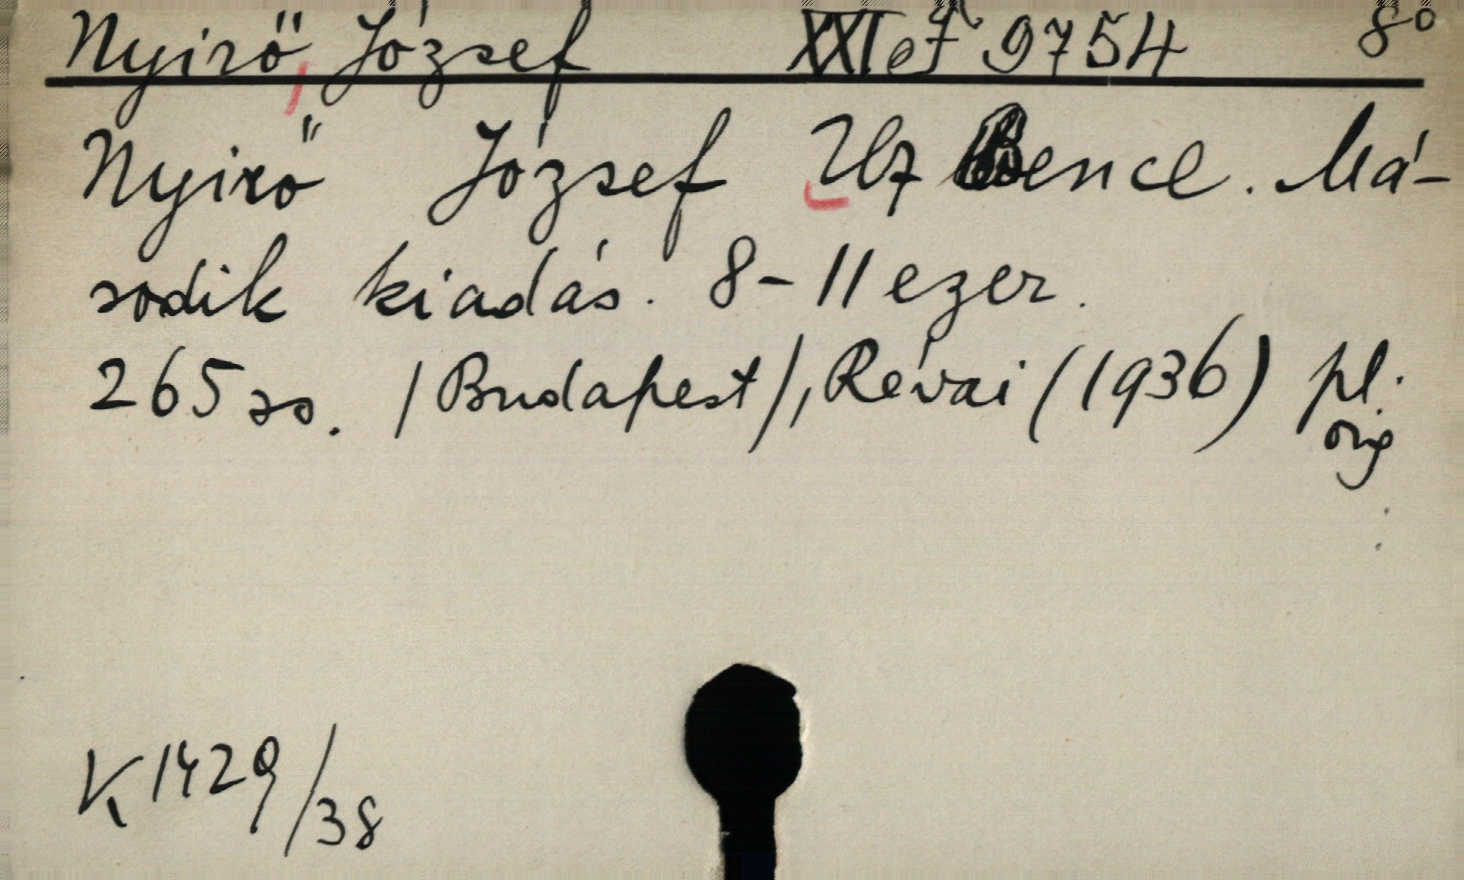 Nyirő, József XXI e F 9754 8°
Nyirő József Uz Bence. Má-
sodik kiadás. 8-11 ezer.
265 so. /Budapest/, Révai (1936) pl.
orig
K 1429/38